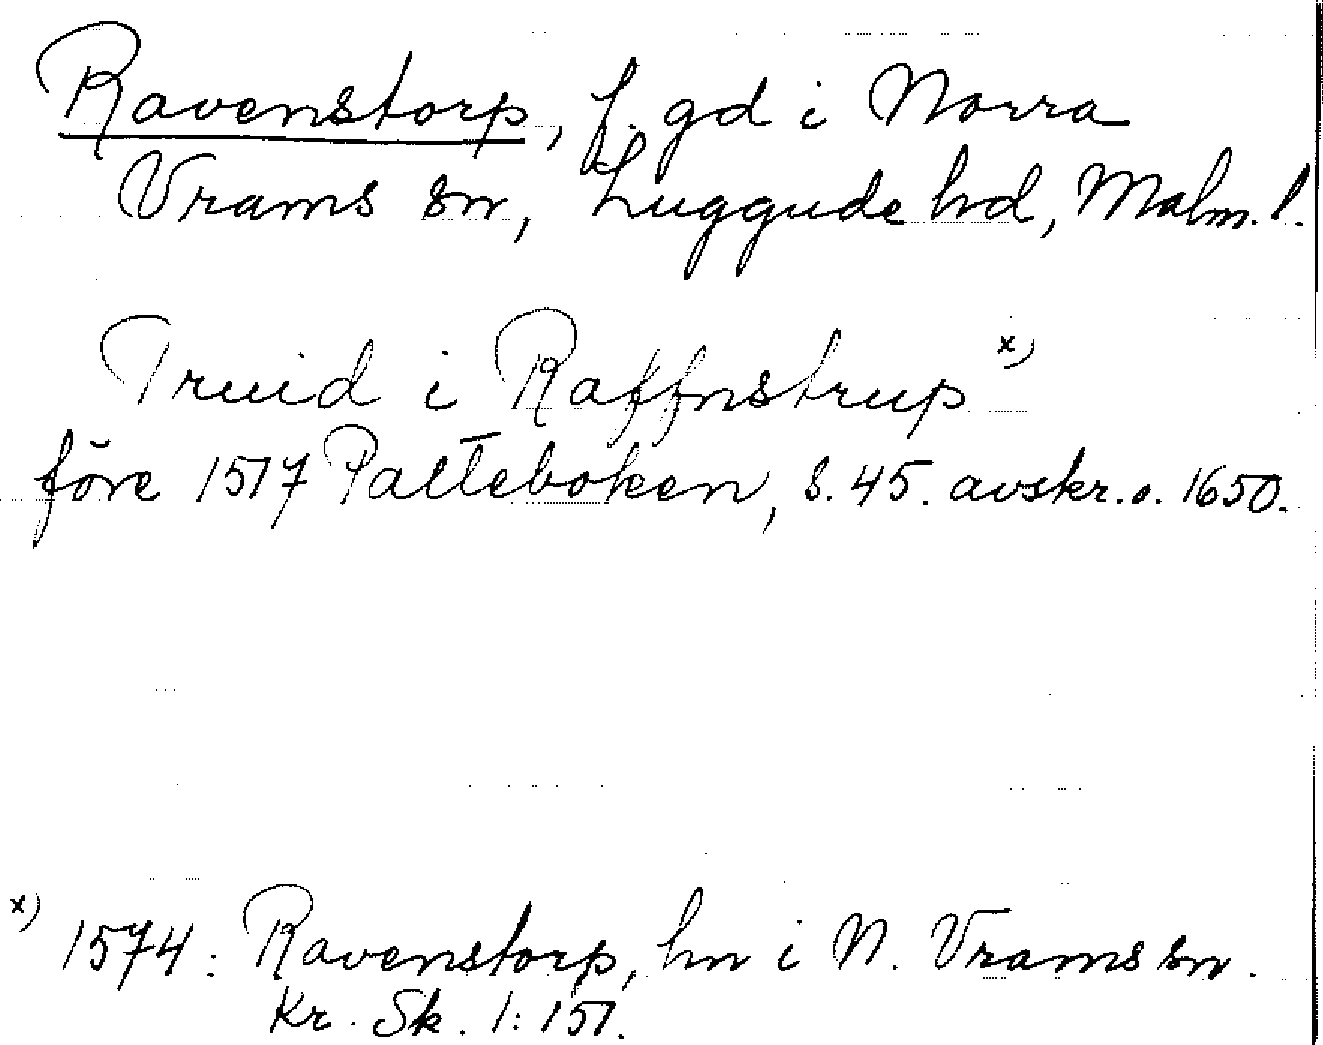 Ravenstorp, f. gd i Norra
Vrams sn, Luggude hd, Malm. l.
Truid i Raffnstrup x)
före 1517 Palteboken, s. 45. avskr. o. 1650.
x) 1574: Ravenstorp, hn i N. Vrams sn.
Kr. Sk. 1: 151.